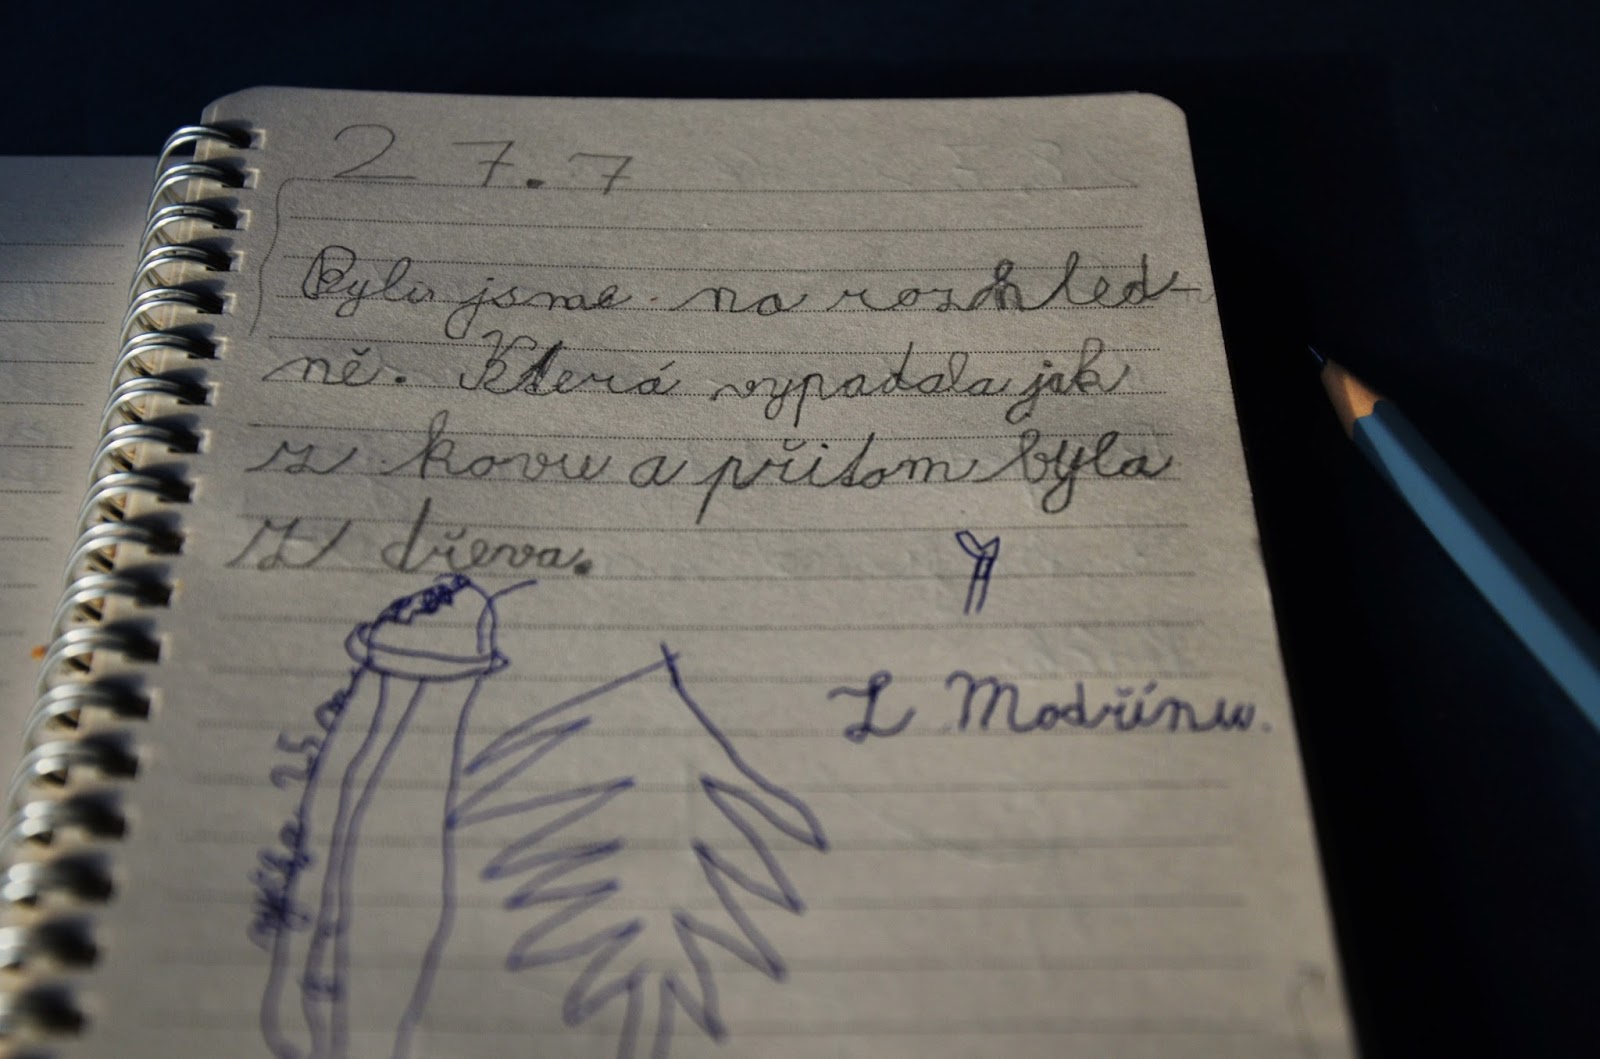 27.7
Byli jsme na rozhled-
ně. Která vypadala jak
z kovu a přitom byla
z dřeva.
Z Modřínu.
výška 25 m